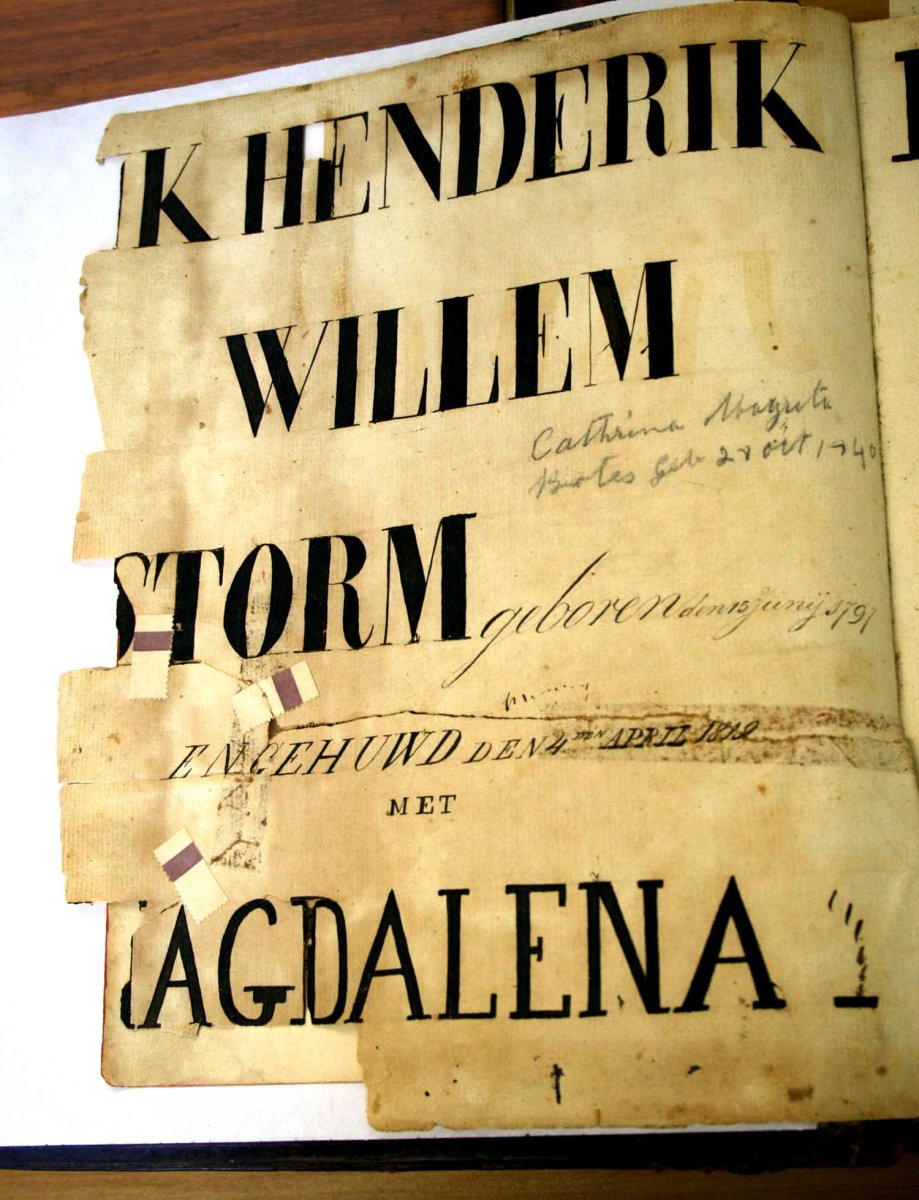 IK HENDERIK
WILLEM
Cathrina Magrita
Botes Geb 28 Oct 1740
STORM geboren den 15 Junij 1791
EN GEHUWD DEN 4DEN APRIL 1812
MET
MAGDALENA